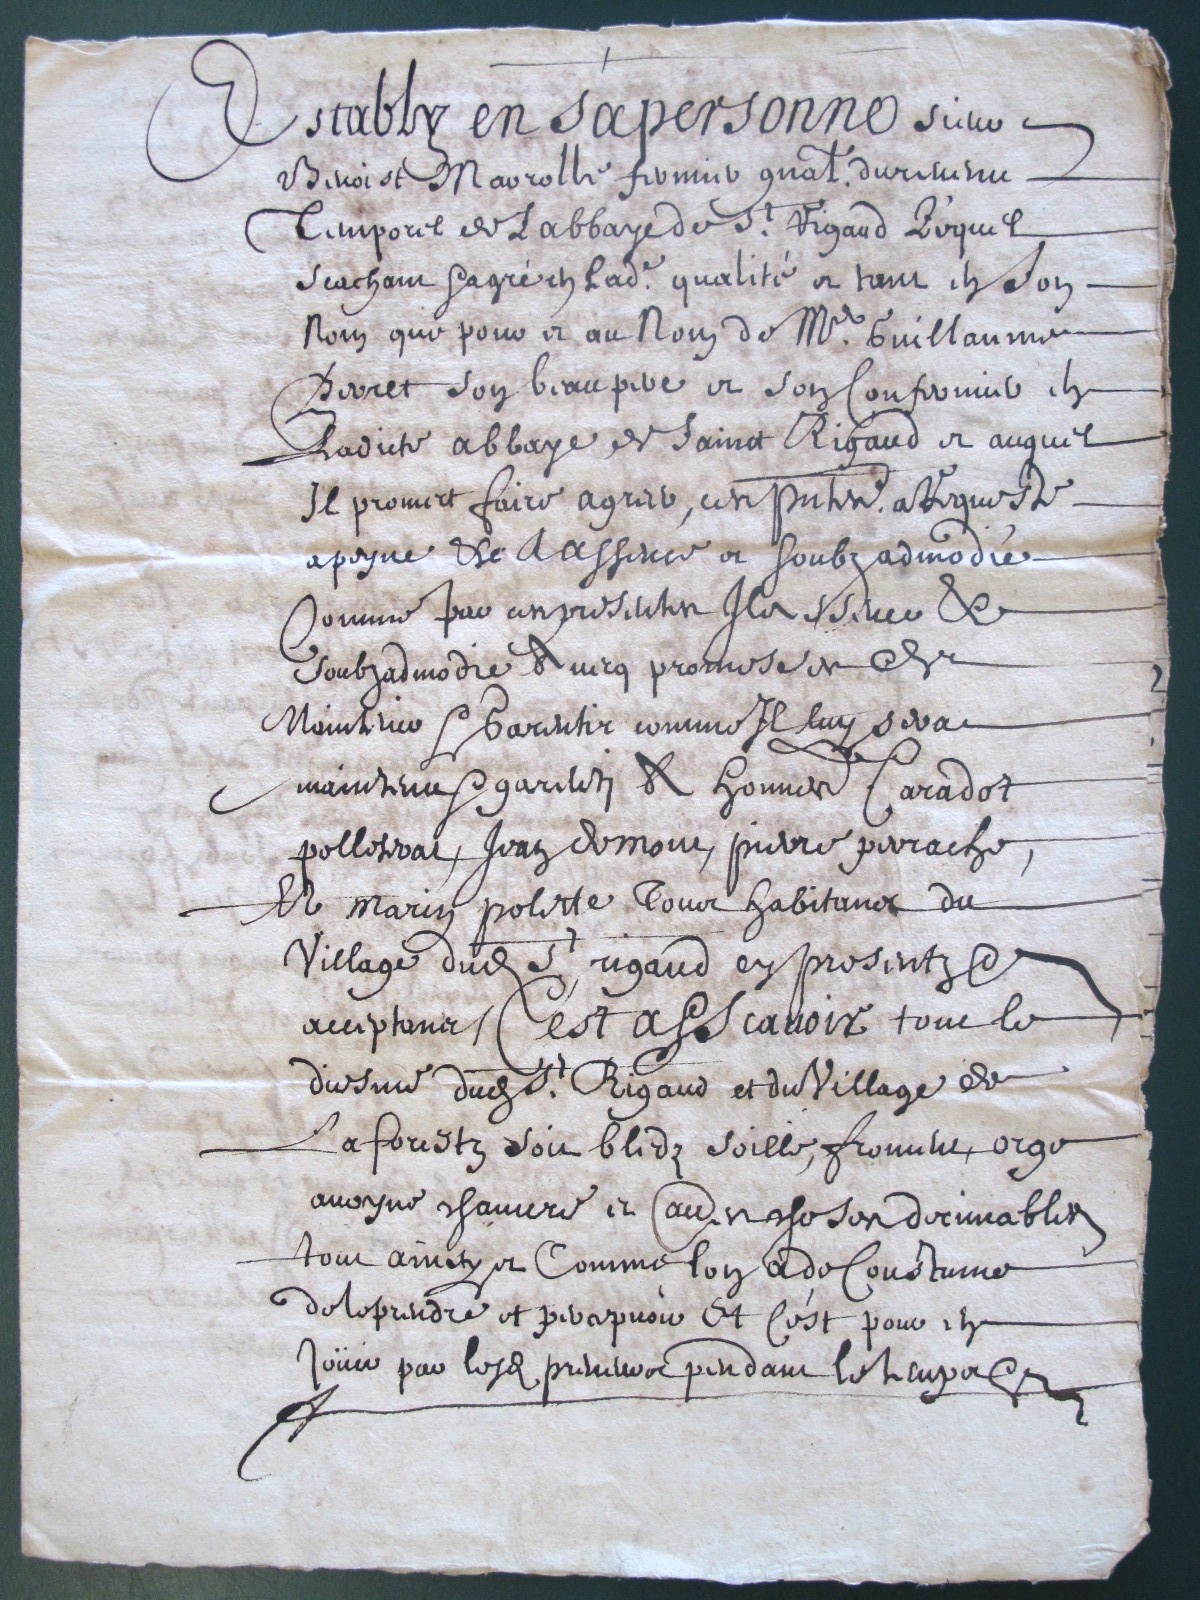 Estably en sa personne sieur
Benoist Marolle fermier gnal. du revenu
temporel de L'abbaye de St. Rigaud Lequel
scachant sagré en Lad. qualité et tant en son
Nom que pour et au Nom de Mre. Guillaume
Perret son beau pere et son Confermier en
Ladicte abbaye de sainct Rigaud et auquel
Il promect faire agreer, ces pntes. a Requeste
a peyne de a assence et soubzadmodie
Comme par ces presentes Il assence &
soubzadmodie avecq promesse de
Maintenir & Garentir comme Il luy sera
maintenu & garenti A honnes
pollet Jean pierre perrache,
Et marin polette Tous habitants du
Village dud St. rigaud cy presentz &
acceptants, C'est asscavoir tout le
diesme dud St. Rigaud et du Village de
La forestz soit bledz soille, froment, orge
avoyne chanvre et auctres choses decimables
tout ainsy et Comme lon a de Coustume
de le prendre et percepvoir Et C'est pour en
Joüir par lesd preneurs pendant le temps &